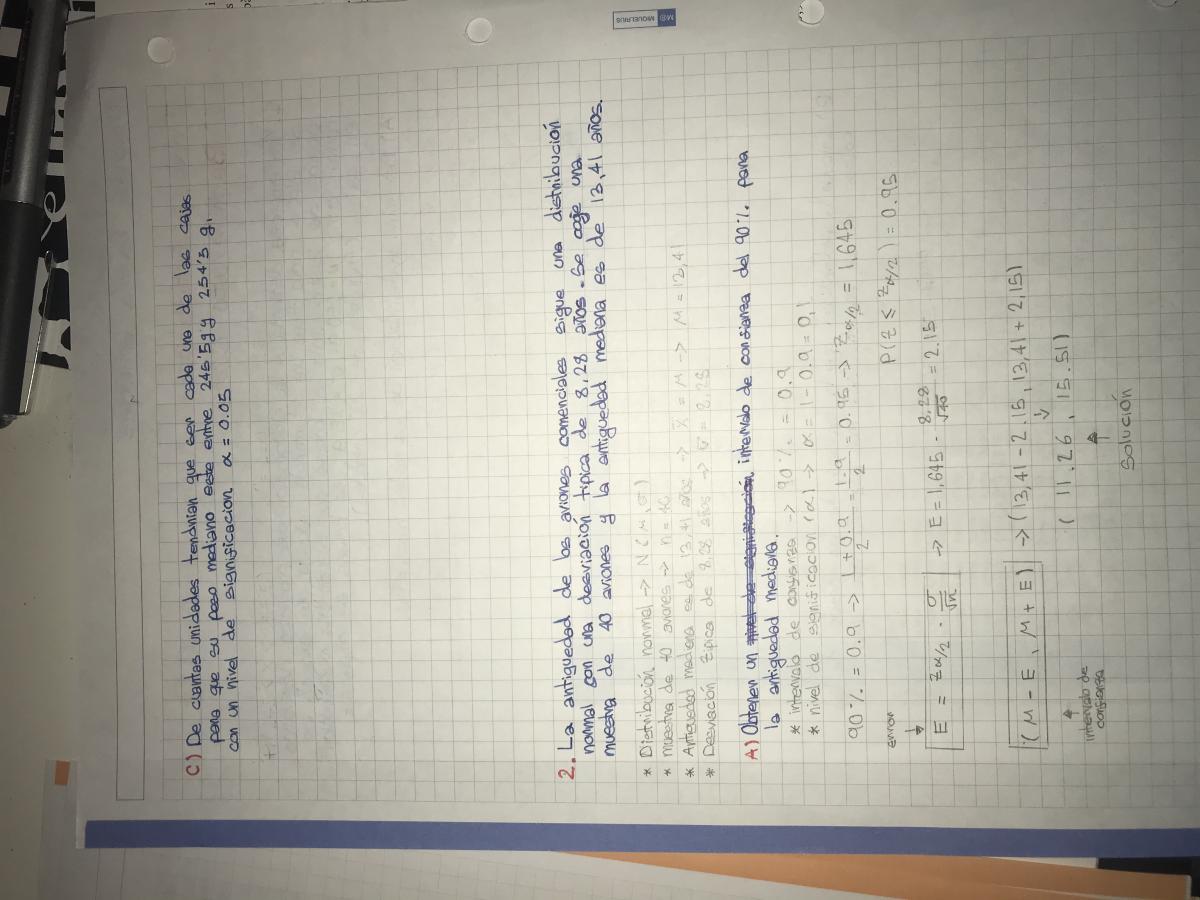 C) De cuantas unidades tendrian que ser cada una de las cajas
para que su peso mediano este entre 246'5g y 254'3 g,
con un nivel de significacion α = 0.05
2. La antiguedad de los aviones comerciales sigue una distribución
normal con una desviación tipica de 8,28 años. Se coge una
muestra de 40 aviones y la antiguedad mediana es de 13,41 años.
* Distribución normal -> N(μ,σ)
* muestra de 40 aviones -> n = 40
* Antiguedad mediana es de 13,41 años -> x̄ = μ -> μ = 13,41
* Desviación tipica de 8,28 años -> σ = 8,28
A) Obtener un nivel de significación intervalo de confianza del 90% para
la antiguedad mediana.
* intervalo de confianza -> 90% = 0.9
* nivel de significacion (α) -> α = 1 - 0.9 = 0,1
90% = 0.9 -> (1+0.9)/2 = 1.9/2 = 0.95 -> Zα/2 = 1,645
P(Z ≤ Zα/2) = 0.95
error
E = Zα/2 · σ/√n -> E = 1,645 · 8,28/√40 = 2.15
(μ - E, μ + E) -> (13,41 - 2.15, 13,41 + 2,15)
intervalo de
confianza
( 11.26, 15.51)
Solución
MIQUELRIUS